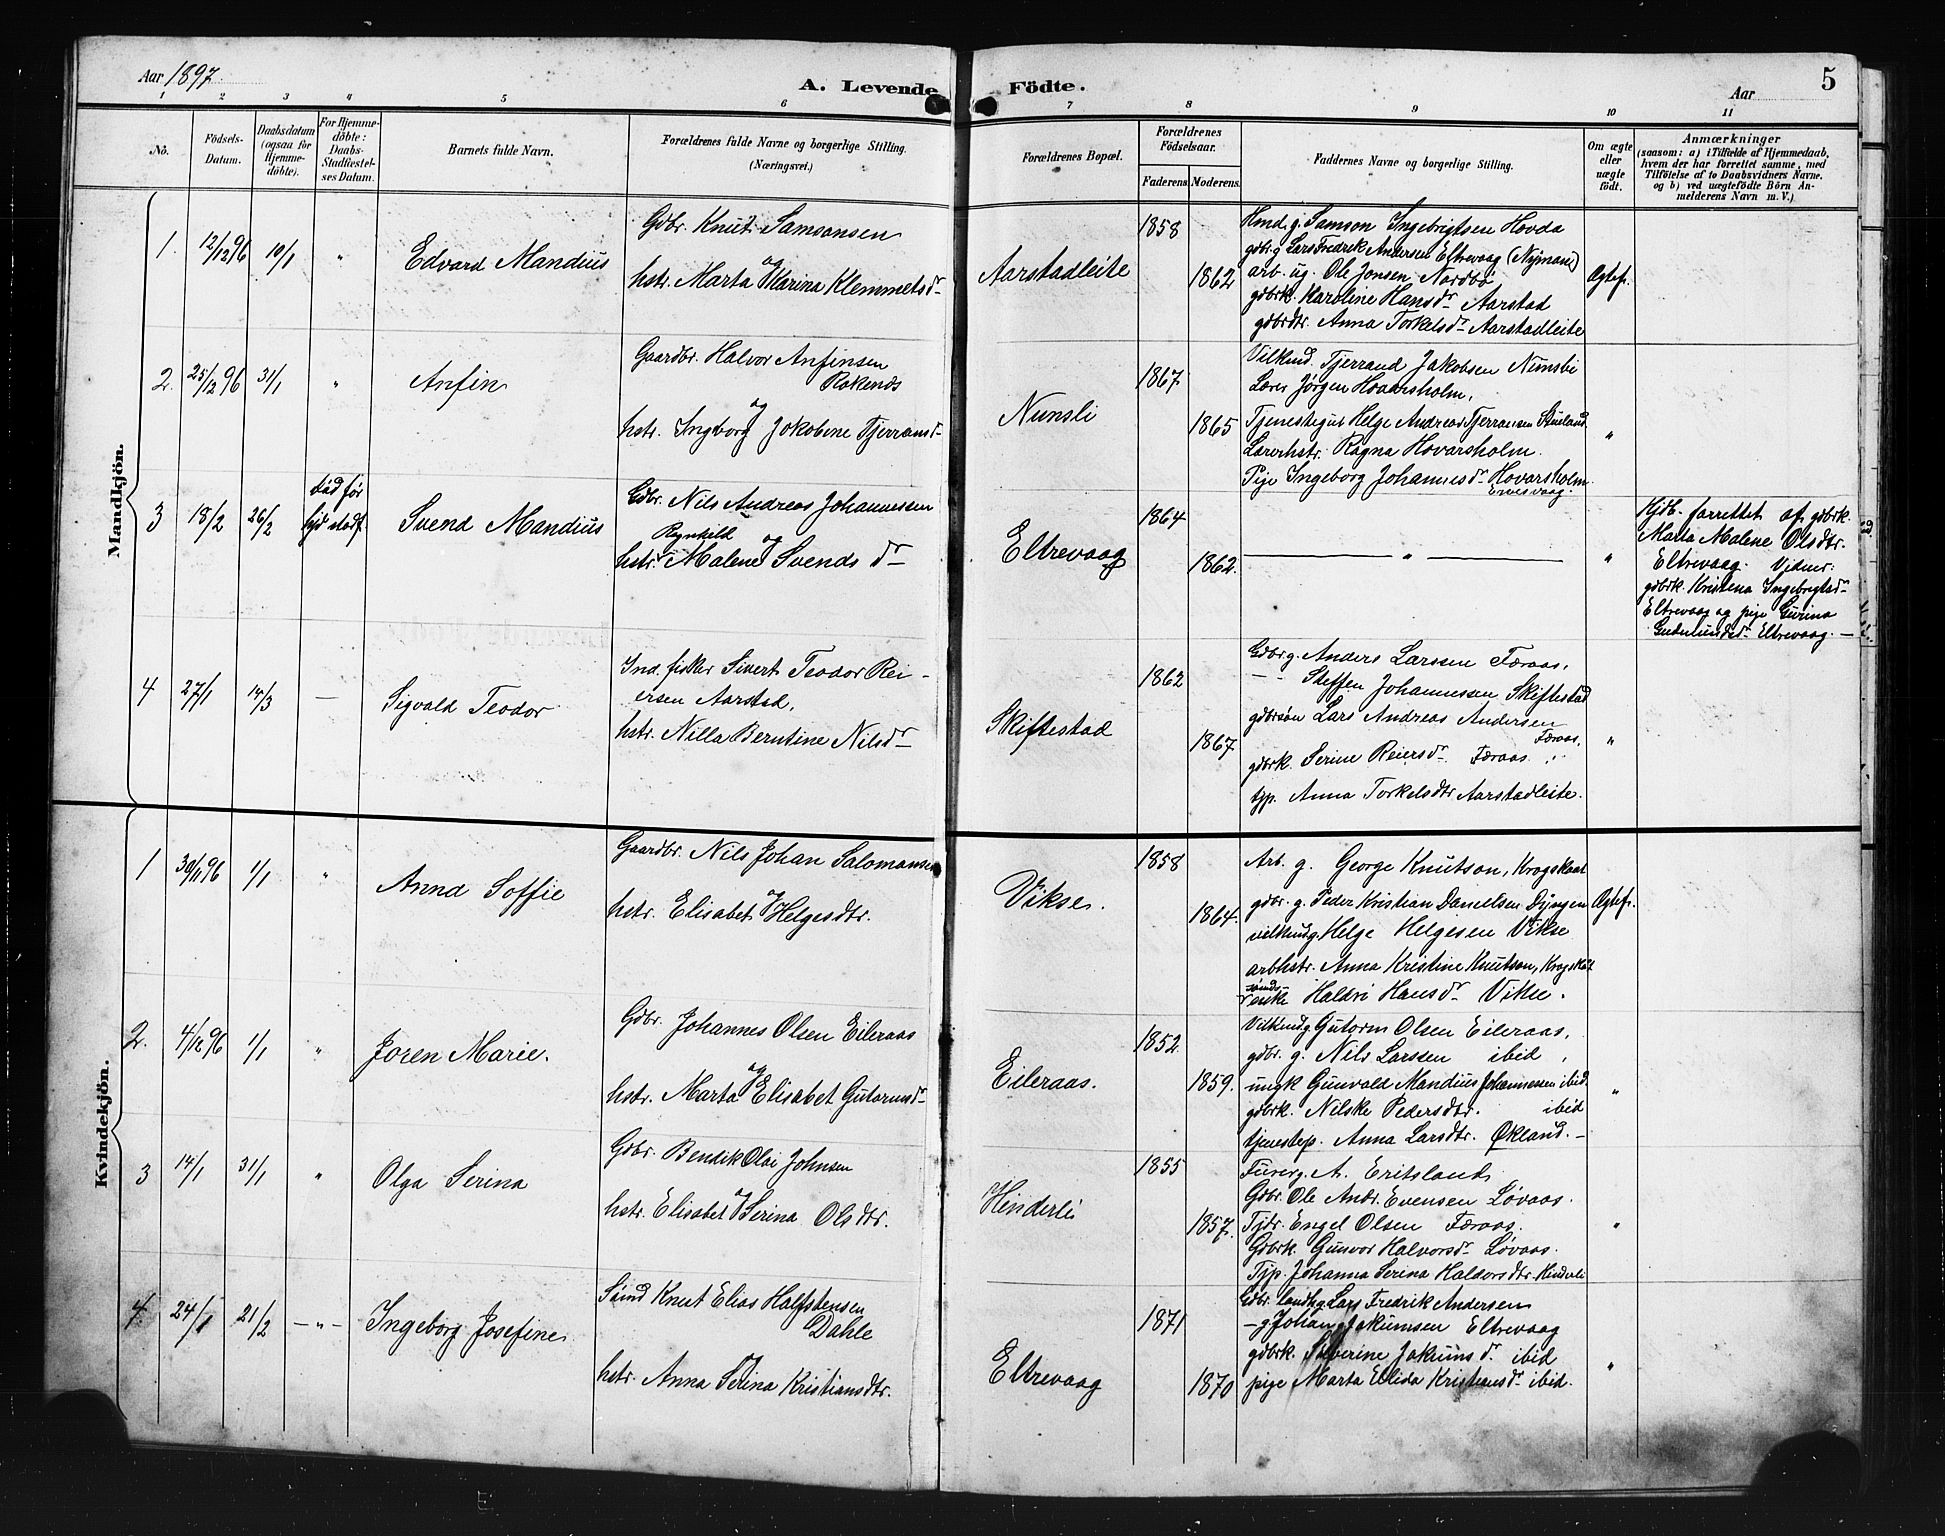 Aar 1897
A. Levende Födte.
Aar
5
1 2 3 4 5 6 7 8 9 10 11
No.
Födsels-Datum.
Daabsdatum (ogsaa for Hjemme-döbte).
For Hjemme-döbte: Daabs-Stadfæstel-ses Datum.
Barnets fulde Navn.
Forældrenes fulde Navne og borgerlige Stilling.
(Næringsvei.)
Forældrenes Bopæl.
Forældrenes Födselsaar.
Faderens
Moderens.
Faddernes Navne og borgerlige Stilling.
Om ægte eller uægte födt.
Anmærkninger
(saasom: a) i Tilfælde af Hjemmedaab,
hvem der har forrettet samme, med
Tilföielse af to Daabsvidners Navne.
og b) ved uægtefödte Börn An-
melderens Navn m. V.)
Mandkjön.
1. 12/12 96 10/1 "
Edvard Mandius
Gdbr. Knut Samsonsen
og
hstr. Marta Karina Klemmetsdr
Aarstadleite
1858
1862
Hmd. g. Samson Ingebrigtsen Hovda
gdbr. g Lars Fredrik Andersen Eltrevaag (Nymann)
arb. ug. Ole Jonsen Nordbö
gdbrk. Karoline Hansdr Aarstad
gdbrdtr. Anna Torkelsdr Aarstadleite
Ægtef.
2. 25/12 96 31/1 "
Anfin
Gaardbr. Halvor Anfinsen
Rokends
og
hstr. Ingborg Jakobine Tjerransdr
Nunsli
1867
1865
Vilkmd. Tjerrand Jakobsen
Lærer Jörgen Hovarsholm,
Tjenestegut Helge Andreas Tjerransen
Lærerhstr. Ragna Hovarsholm.
Pige Ingeborg Johannesdr Hovarsholm
"
3 18/2 26/2
död før
hjd stadf.
Svend Mandius
Gdbr. Nils Andreas Johannessen
Rynkild og
hstr. Malene Svends dr
Eltrevaag
1864
1862.
"
"
Hjdb. forrettet af gdbrk.
Marta Malene Olsdtr.
Eltrevaag. Vidner:
gdbrk. Kristena Ingebrigtsdr
Eltrevaag og pige Gurina
Gudmundsdr Eltrevaag. —
4 27/1 14/3 —
Sigvald Teodor
Ind. fisker Sivert Teodor Rei-
ersen Aarstad,
hstr. Nilla Berntine Nilsdr
Skiftestad
1862
1867
Gdbr g. Anders Larssen Færaas,
— " — Steffen Johannessen Skiftestad
gdbrsön Lars Andreas Andersen
Færaas,
gdbrk. Serine Reiersdr Færaas.
tjp. Anna Torkelsdtr Aarstadleite.
"
Kvindekjön.
1 30/11 96 1/1 "
Anna Soffie
Gaardbr. Nils Johan Salomonsen
og
hstr. Elisabet Helgesdtr.
Vikse.
1858
1864.
Arb. g. George Knutson, Krogskaat
gdbr. g. Peder Kristian Danielsen Dyngen
vilkmd g. Helge Helgesen Vikse
arbhstr. Anna Kristine Knutson, Krogskat
enke Haldri Hansdr Vikse.
Ægtef.
2. 4/12 96 1/1 "
Joren Marie.
Gdbr. Johannes Olsen Eileraas
og
hstr. Marta Elisabet Gutormsdr
Eileraas.
1852
1859.
Vilkmd g Gutorm Olsen Eileraas,
gdbr. g. Nils Larssen ibid,
ungk Gunvald Mandius Johannessen ibid.
gdbrk. Nilske Pedersdtr. ibid
tjenestep. Anna Larsdtr. Økland. —
"
3 14/1 31/1 "
Olga Serina
Gdbr. Bendik Olai Johnsen
og
hstr. Elisabet Serina Olsdtr.
Hinderli
1855
1857.
A. Eritsland
Gdbr. Ole Andr. Evensen Lövaas.
Tjdr. Engel Olsen Færaas.
Gdbrk. Gunvor Halvorsdr Lövaas.
Tjp. Johanna Serina Haldorsdtr. Hinderli
"
4. 24/1 21/2 — " —
Ingeborg Josefine
Knut Elias Halfstensen
Dahle
hstr. Anna Serina Kristiansdtr.
Eltrevaag
1871
1870
Gdbr. Lars Fredrik Andersen
— g Johan Jakumsen Eltrevaag
gdbrk. Severine Jakums dr. ibid
pige Marta Elida Kristiansdr ibid.
"